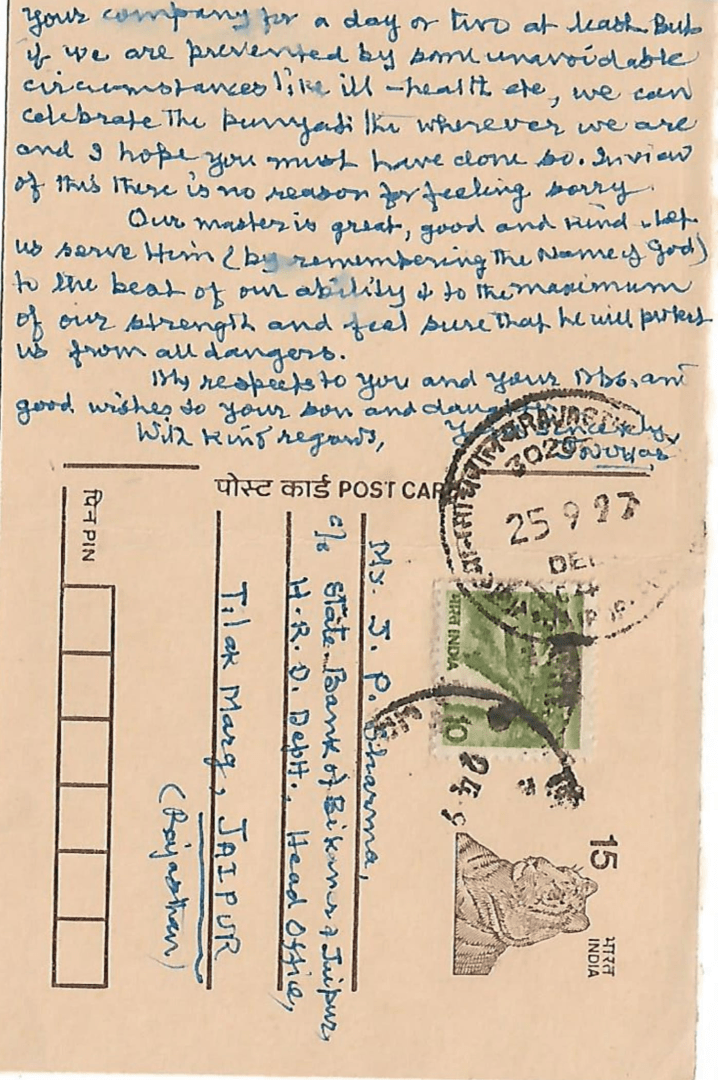 your company for a day or two at least. But
if we are prevented by some unavoidable
circumstances like ill-health etc, we can
celebrate the punyatithi wherever we are
and I hope you must have done so. In view
of this there is no reason for feeling sorry.
Our master is great, good and kind. Let
us serve Him (by remembering the Name of God)
to the best of our ability & to the maximum
of our strength and feel sure that he will protect
us from all dangers.
My respects to you and your Mrs. and
good wishes to your son and
With kind regards, Yours Sincerely,
पोस्ट कार्ड POST CARD
पिन PIN
Mr. J. P. Sharma,
c/o State Bank of Bikaner & Jaipur,
H.R.D. Deptt., Head Office,
Tilak Marg, JAIPUR
(Rajasthan)
25 9 97
भारत INDIA
10
24
15
भारत
INDIA